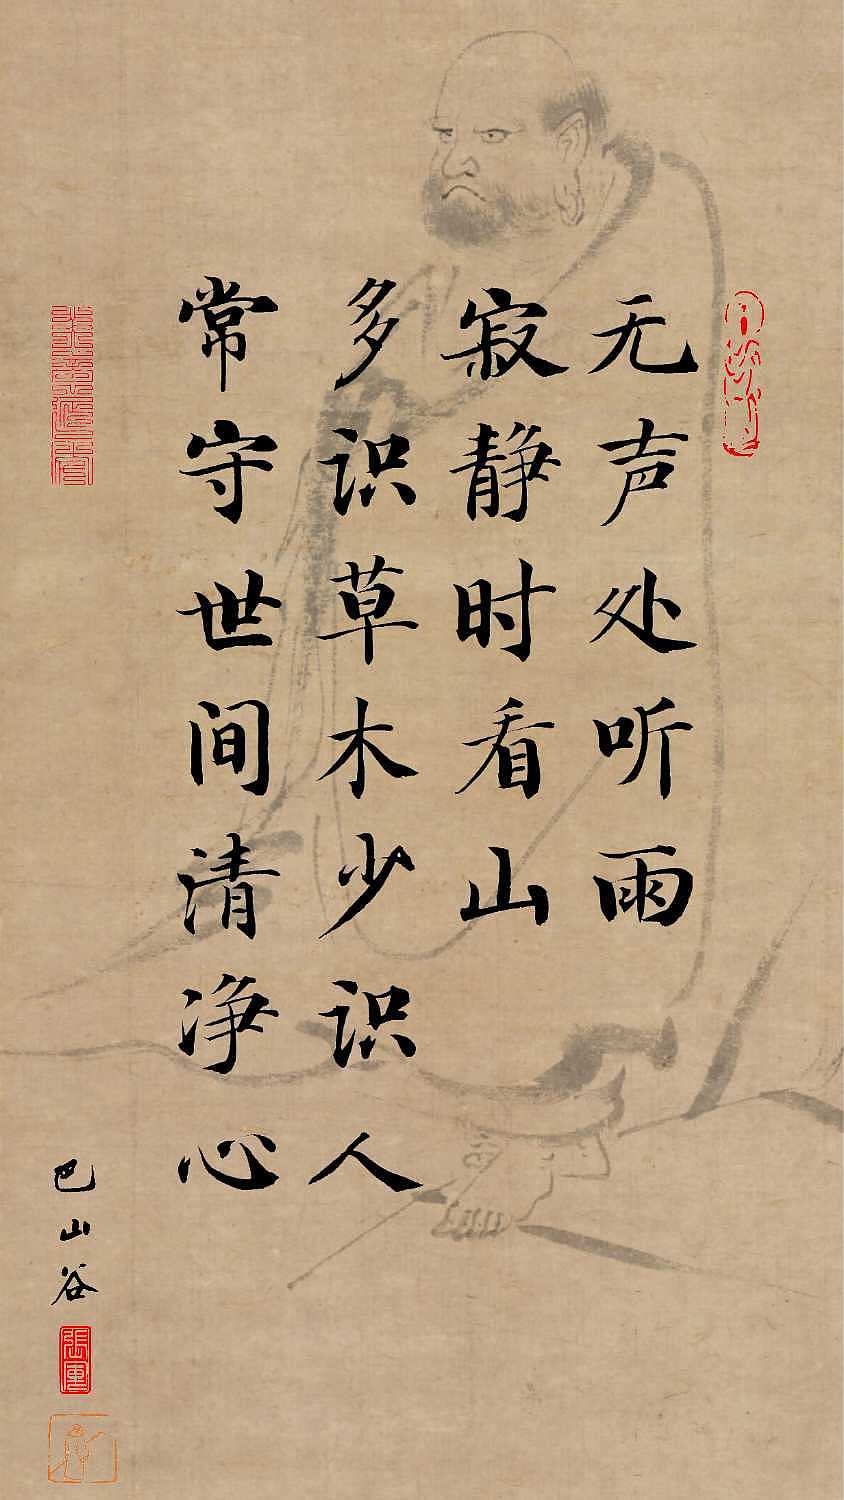 无声处听雨
寂静时看山
多识草木少识人
常守世间清净心
巴山谷